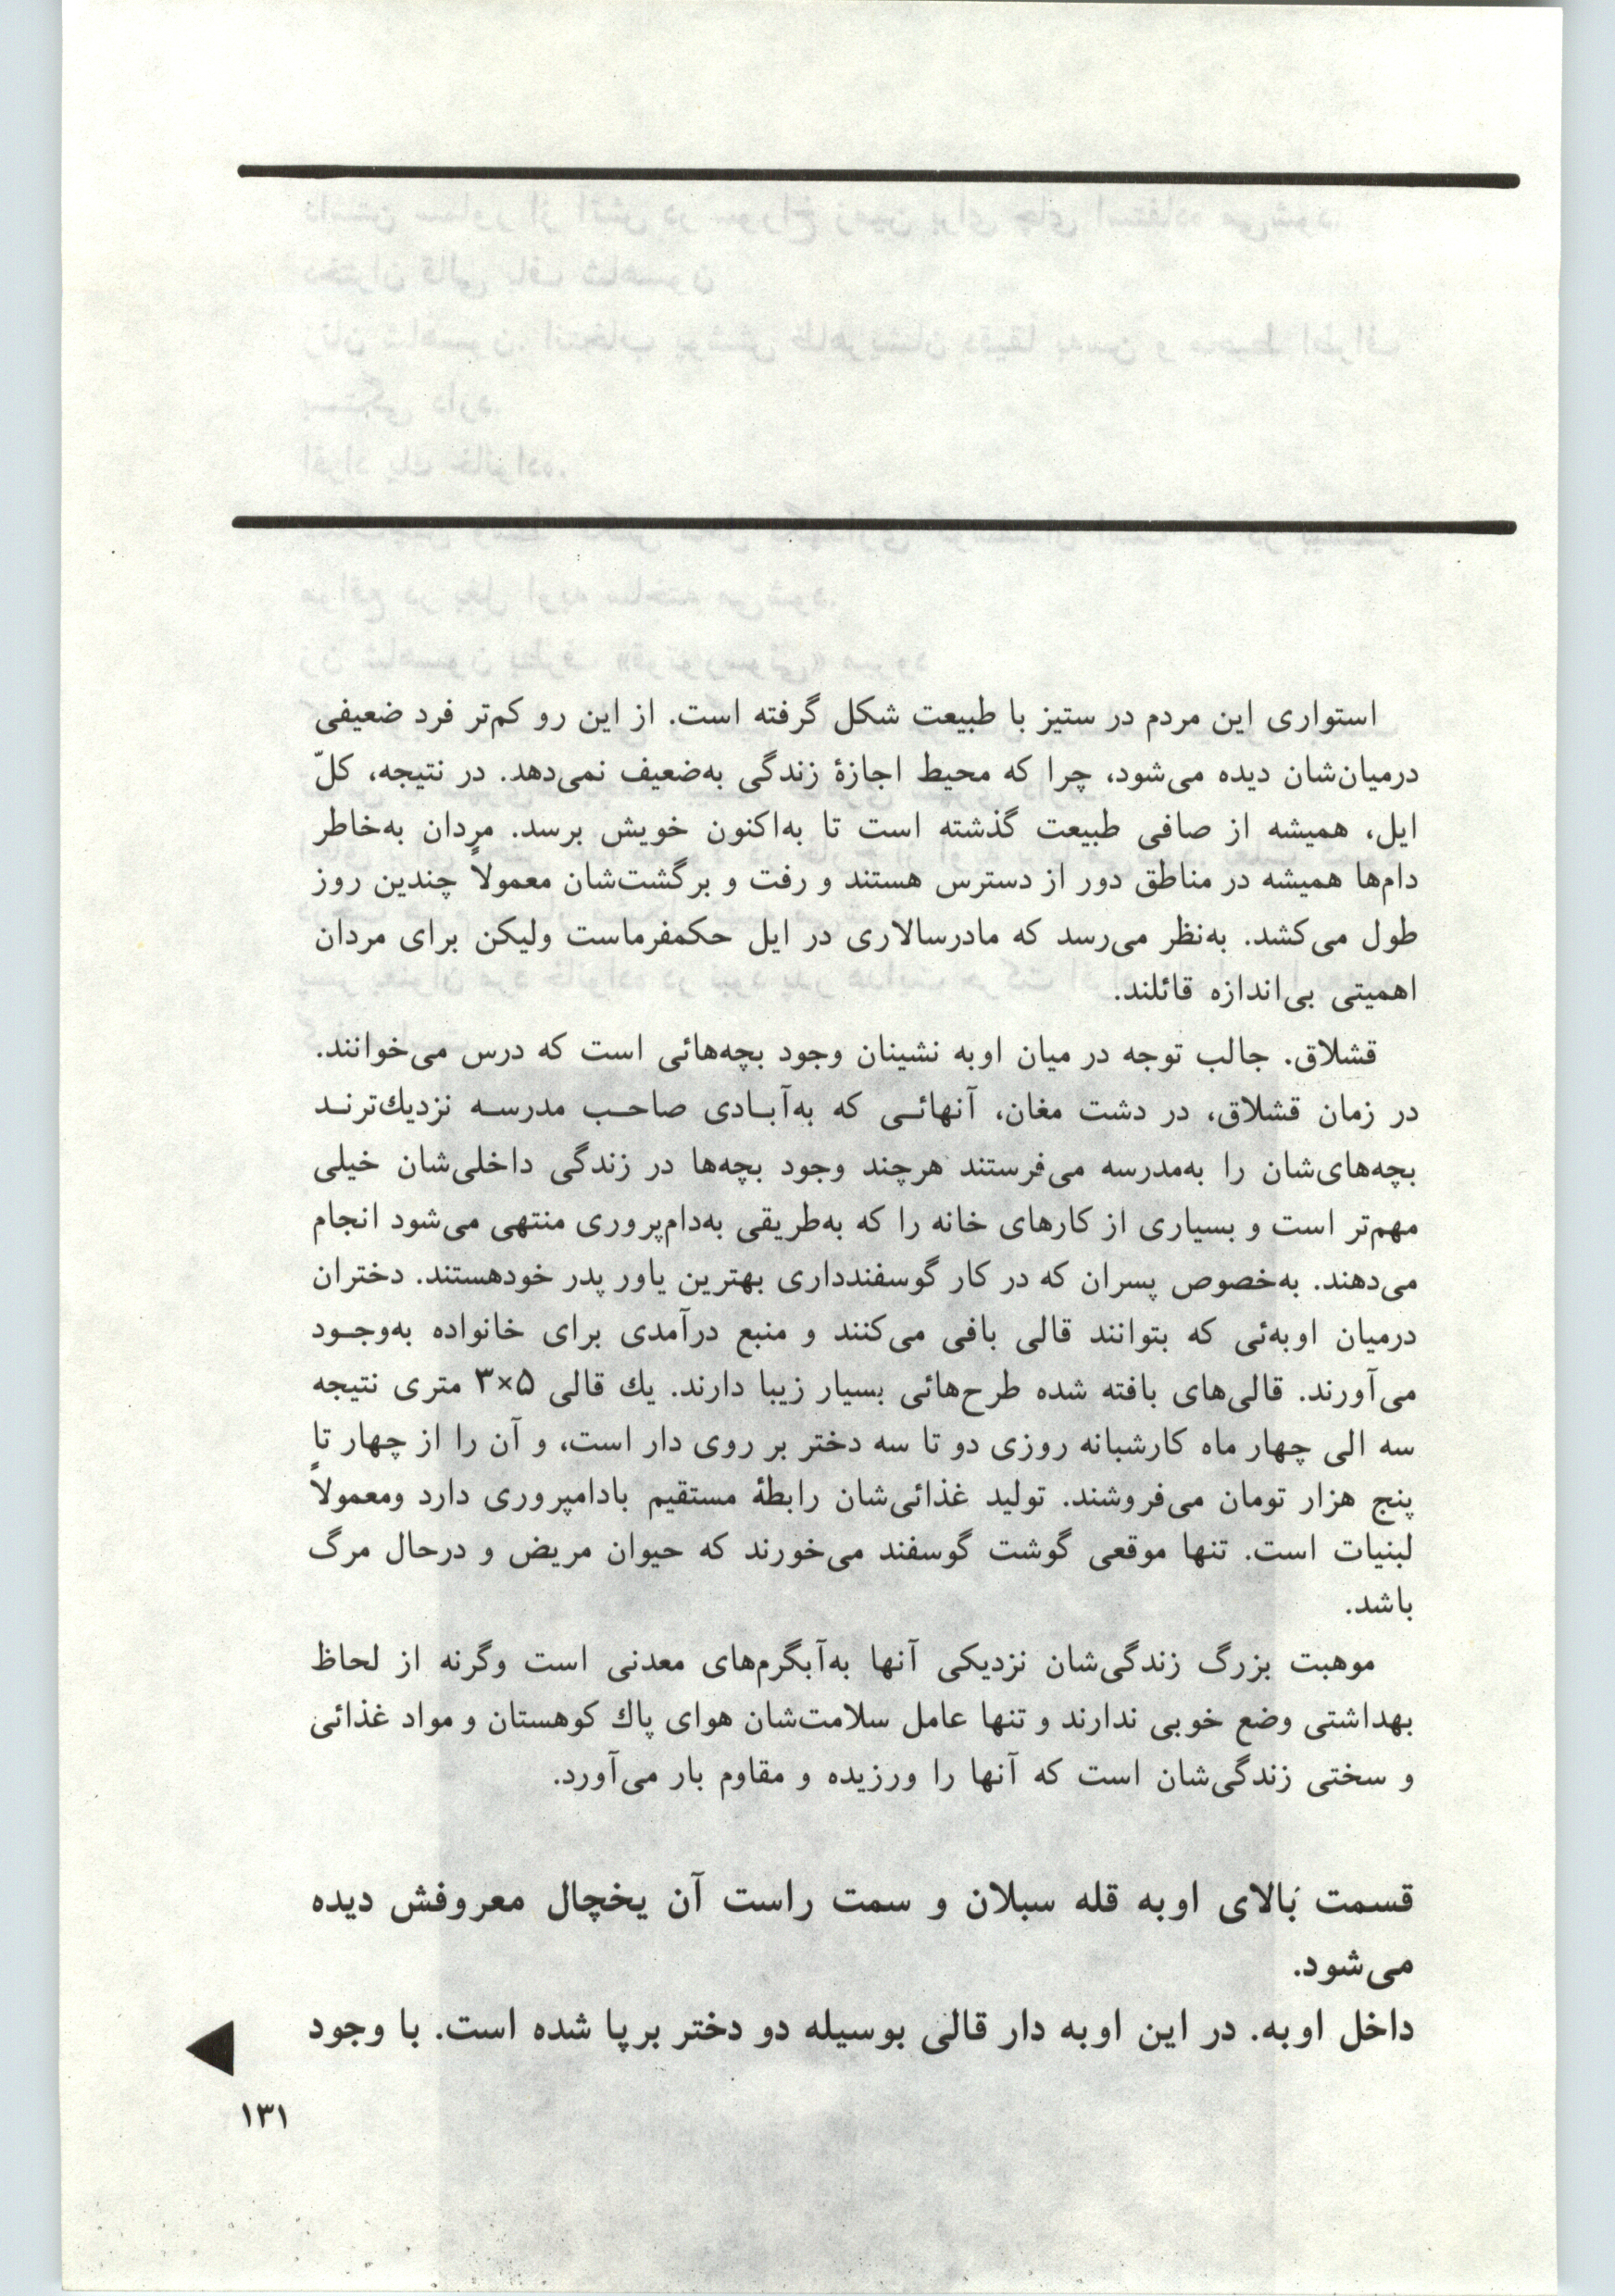 استواری این مردم در ستیز با طبیعت شکل گرفته است. از این رو کم‌تر فرد ضعیفی
درمیان‌شان دیده می‌شود، چرا که محیط اجازهٔ زندگی به‌ضعیف نمی‌دهد. در نتیجه، کلّ
ایل، همیشه از صافی طبیعت گذشته است تا به‌اکنون خویش برسد. مردان به‌خاطر
دام‌ها همیشه در مناطق دور از دسترس هستند و رفت و برگشت‌شان معمولاً چندین روز
طول می‌کشد. به‌نظر می‌رسد که مادرسالاری در ایل حکمفرماست ولیکن برای مردان
اهمیتی بی‌اندازه قائلند.
قشلاق. جالب توجه در میان اوبه نشینان وجود بچه‌هائی است که درس می‌خوانند.
در زمان قشلاق، در دشت مغان، آنهائی که به‌آبادی صاحب مدرسه نزدیك‌ترند
بچه‌های‌شان را به‌مدرسه می‌فرستند هرچند وجود بچه‌ها در زندگی داخلی‌شان خیلی
مهم‌تر است و بسیاری از کارهای خانه را که به‌طریقی به‌دام‌پروری منتهی می‌شود انجام
می‌دهند. به‌خصوص پسران که در کار گوسفندداری بهترین یاور پدر خودهستند. دختران
درمیان اوبه‌ئی که بتوانند قالی بافی می‌کنند و منبع درآمدی برای خانواده به‌وجود
می‌آورند. قالی‌های بافته شده طرح‌هائی بسیار زیبا دارند. یك قالی ۵×۳ متری نتیجه
سه الی چهار ماه کارشبانه روزی دو تا سه دختر بر روی دار است، و آن را از چهار تا
پنج هزار تومان می‌فروشند. تولید غذائی‌شان رابطهٔ مستقیم بادامپروری دارد ومعمولاً
لبنیات است. تنها موقعی گوشت گوسفند می‌خورند که حیوان مریض و درحال مرگ
باشد.
موهبت بزرگ زندگی‌شان نزدیکی آنها به‌آبگرم‌های معدنی است وگرنه از لحاظ
بهداشتی وضع خوبی ندارند و تنها عامل سلامت‌شان هوای پاك کوهستان و مواد غذائی
و سختی زندگی‌شان است که آنها را ورزیده و مقاوم بار می‌آورد.
قسمت بالای اوبه قله سبلان و سمت راست آن یخچال معروفش دیده
می‌شود.
داخل اوبه. در این اوبه دار قالی بوسیله دو دختر برپا شده است. با وجود
۱۳۱